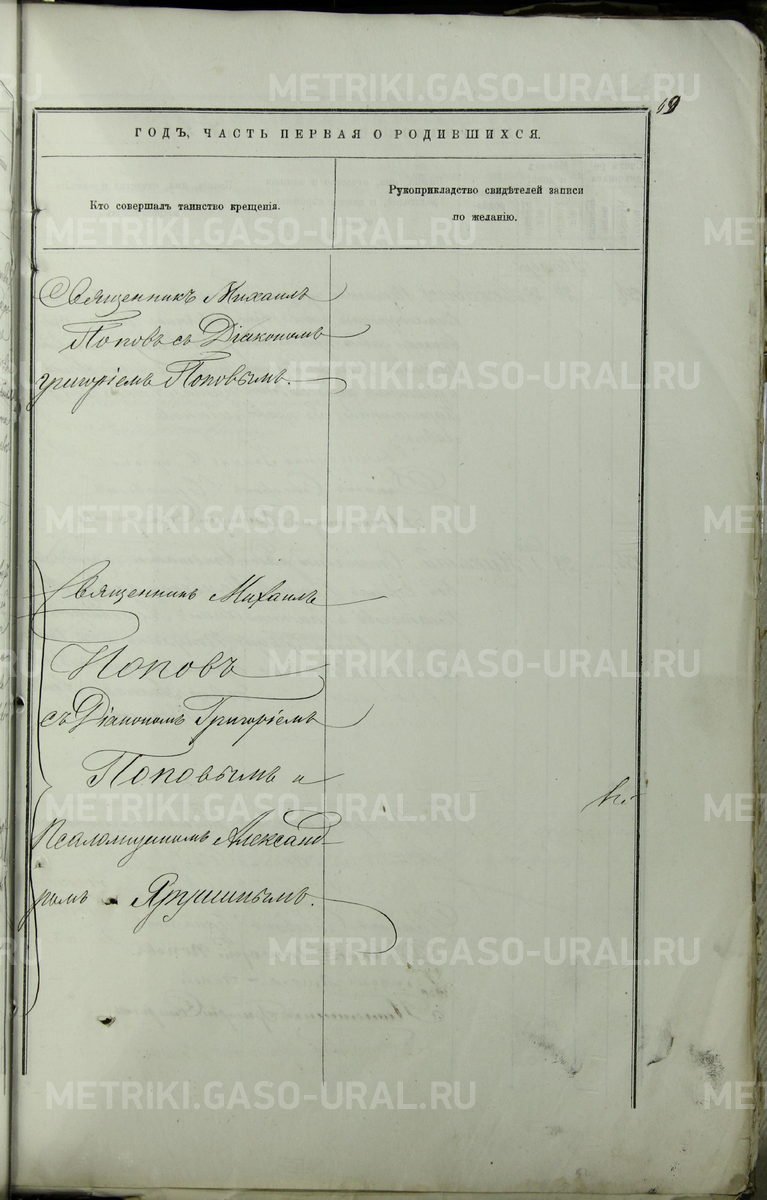 ГОДЪ, ЧАСТЬ ПЕРВАЯ О РОДИВШИХСЯ.
Кто совершалъ таинство крещенія.
Рукоприкладство свидѣтелей записи
по желанію.
Священникъ Михаилъ
Поповъ съ Діакономъ
Григоріемъ Поповымъ.
Священникъ Михаилъ
Поповъ
съ Діакономъ Григоріемъ
Поповымъ и
Псаломщикомъ Александ-
ромъ Ярушинымъ.
METRIKI.GASO-URAL.RU